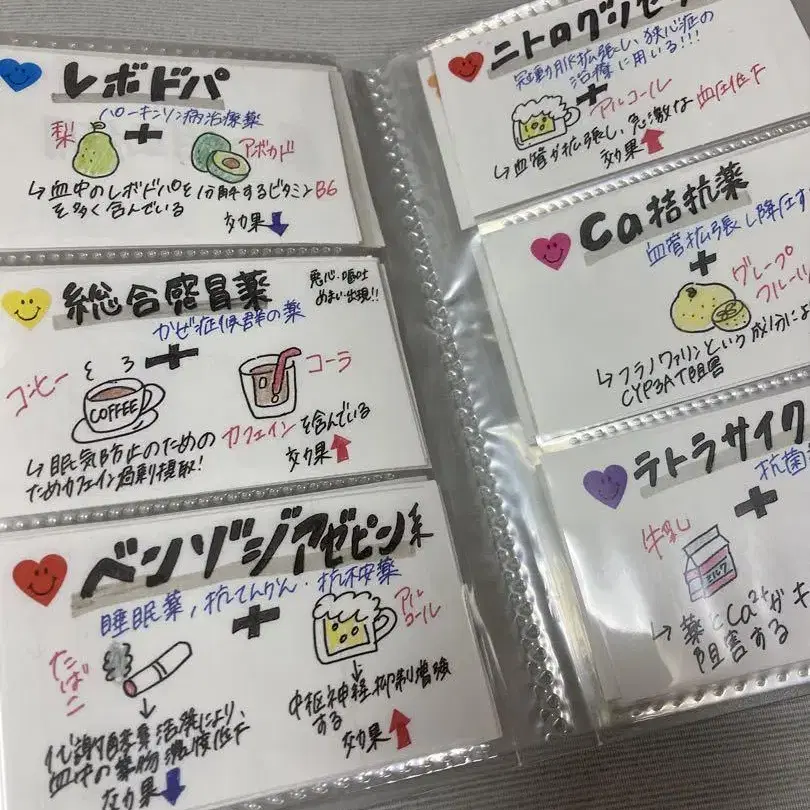 レボドパ
パーキンソン病治療薬
梨
+
アボカド
↳血中のレボドパを分解するビタミンB6
を多く含んでいる
効果↓
総合感冒薬
悪心・嘔吐
めまい出現!!
かぜ症候群の薬
コーヒー
+
コーラ
COFFEE
カフェインを含んでいる
↳眠気防止のための
ためカフェイン過剰摂取!
効果↑
ベンゾジアゼピン系
睡眠薬,抗てんかん・抗不安薬
たばこ
+
アルコール
↓
代謝酵素活発により、
血中の薬物濃度低下
効果↓
↓
中枢神経抑制増強
する
効果↑
ニトログリセ
冠動脈拡張し、狭心症の
治療に用いる!!!
+
アルコール
↳血管が拡張し、急激な血圧低下
効果↑
Ca拮抗薬
血管拡張し降圧す
+
グレープ
フルーツ
↳フラノクマリンという成分によ
阻害
テトラサイク
抗菌
+
牛乳
ミルク
↳薬とCa²⁺がキ
阻害する